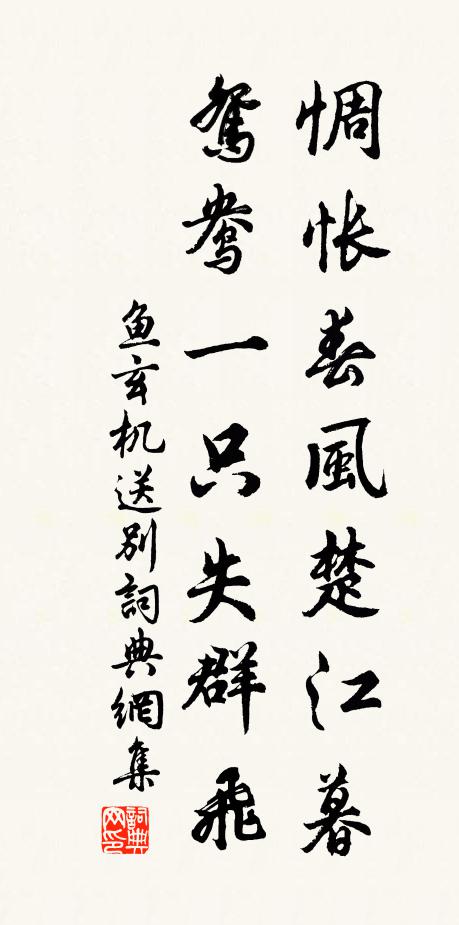 惆怅春風楚江暮
鴛鴦一只失群飛
鱼玄机送别詞典網集
詞典网印